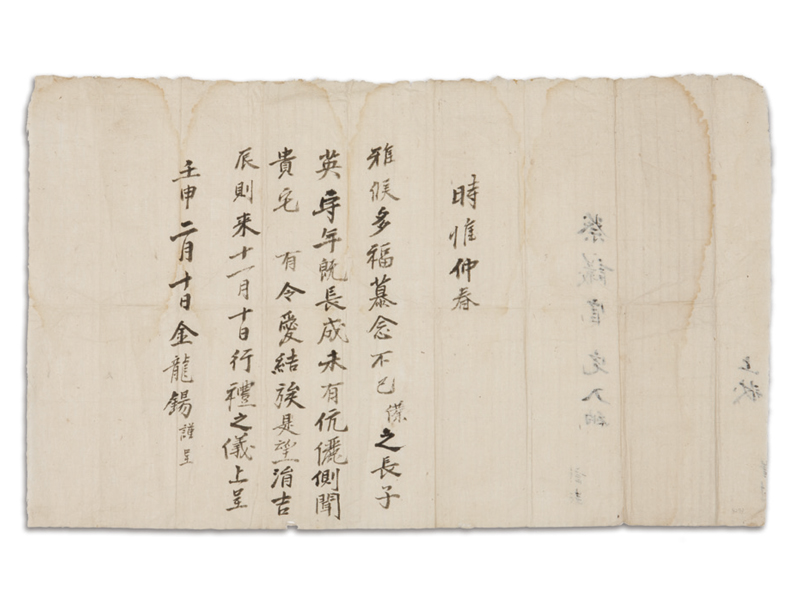 時惟仲春
雅候多福慕念不已僕之長子
英年既長成未有伉儷側聞
貴宅 有令愛結族是望涓吉
辰則來十一月十日行禮之儀上呈
壬申二月十日金龍錫謹呈